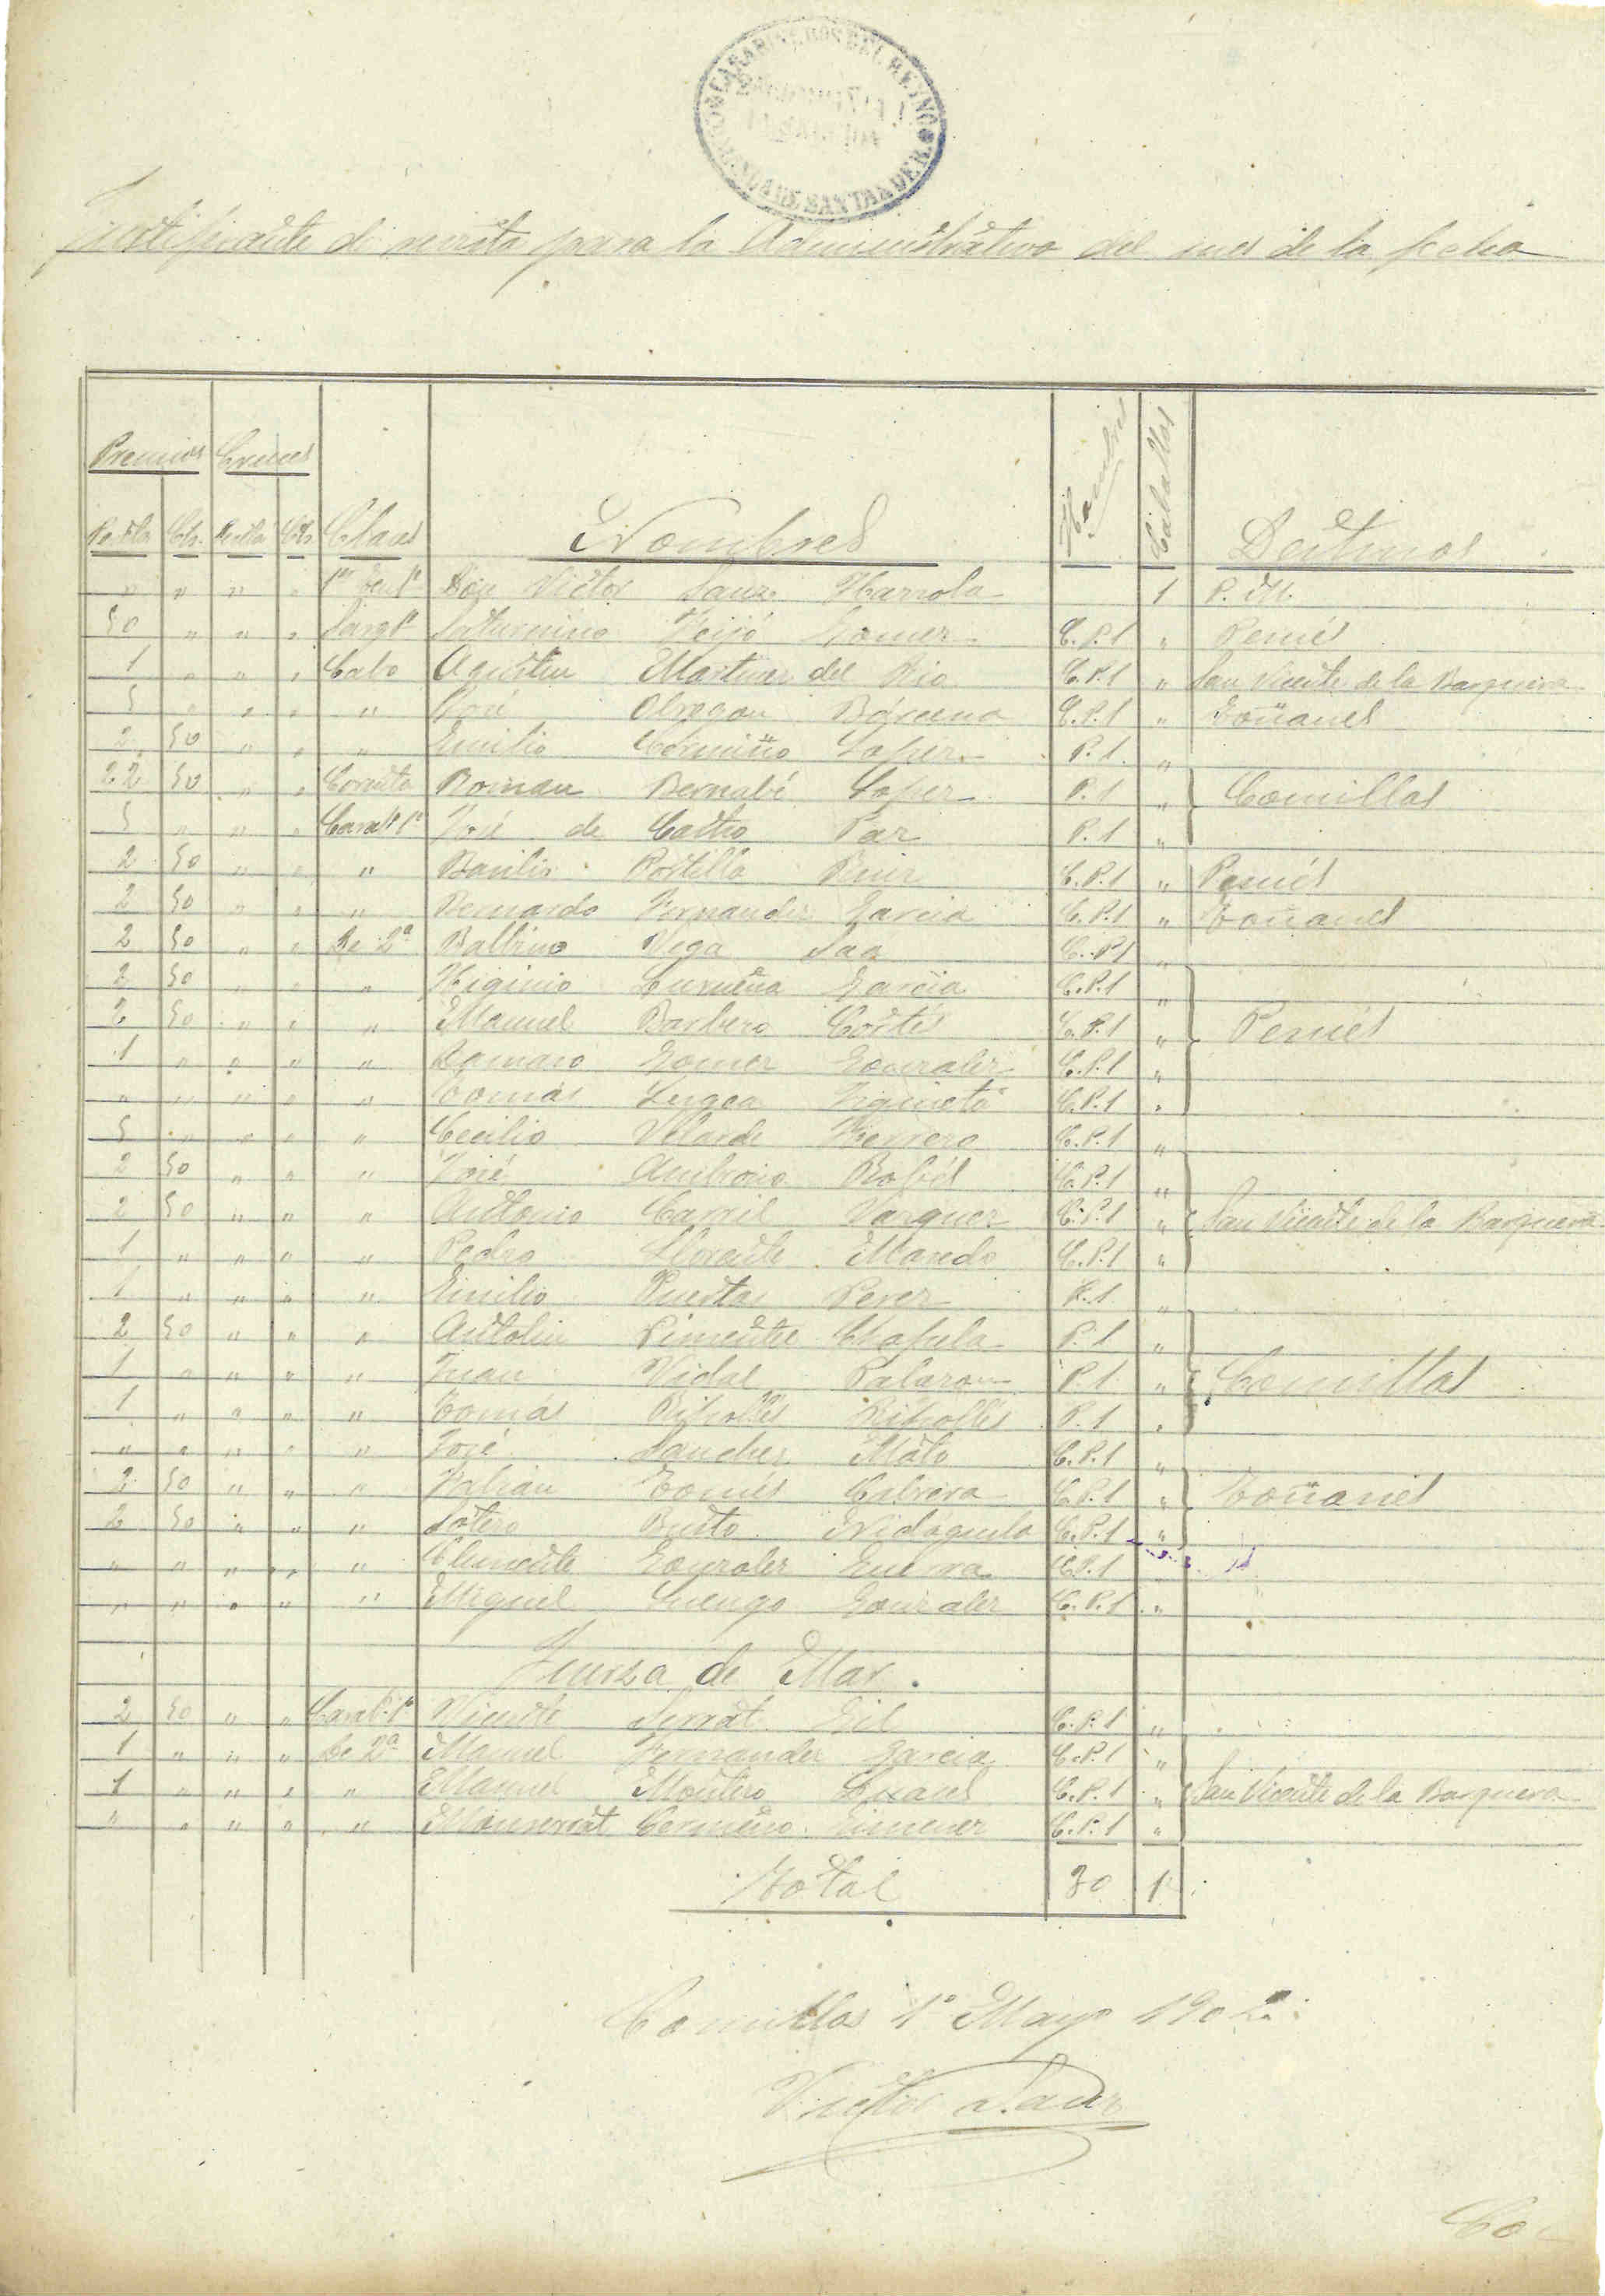 CARABINEROS DEL REINO
SANTANDER
Justificante de revista para la Administrativa del mes de la fecha
Premios Cruces
Pestas Cts. Pestas Cts. Clases Nombres Hombres Caballos Destinos
" " " " 1er Tente Don Victor Sanz Ibarrola 1 P. M.
50 " " " Sargto Saturnino Feijó Gomez C.P.1 " Remés
1 " " " Cabo Agustin Martinez del Rio C.P.1 " San Vicente de la Barquera
5 " " " " José Obregon Bárcena C.P.1 " Toñanes
2 50 " " " Emilio Cermiño Lopez P.1 "
22 50 " " Corneta Roman Bernabé Lopez P.1 " Comillas
5 " " " Carabo 1a José de Castro Paz P.1 "
2 50 " " " Basilio Portilla Ruiz C.P.1 " Remés
2 50 " " " Bernardo Fernandez Garcia C.P.1 " Toñanes
2 50 " " De 2a Balbino Vega Saa C.P.1 "
2 50 " " " Higinio Lurueña Garcia C.P.1 "
2 50 " " " Manuel Barbero Cortés C.P.1 " Remés
1 " " " " Gomez Gonzalez C.P.1 "
" " " " " Tomás C.P.1 "
5 " " " " Cecilio Velarde Herrero C.P.1 "
2 50 " " " José Ambrosio C.P.1 "
2 50 " " " Antonio Carril Vazquez C.P.1 " San Vicente de la Barquera
1 " " " " Pedro Llorente C.P.1 "
1 " " " " Emilio Puertas Perez P.1 "
2 50 " " " Antolin Pimentel Chapela P.1 "
1 " " " " Juan Vidal Palazon P.1 " Comillas
1 " " " " Tomás Ripollés Ripollés P.1 "
" " " " " José Sanchez Mato C.P.1 "
2 50 " " " Fabián Tomés Cabrera C.P.1 " Toñanes
2 50 " " " Sotero Busto Nidáguila C.P.1 "
" " " " " Clemente Gonzalez Guerra C.P.1
" " " " " Miguel Luengo Gonzalez C.P.1 "
Fuerza de Mar.
2 50 " " Carabo 1a Vicente Serrat Gil C.P.1 "
1 " " " De 2a Manuel Fernandez Garcia C.P.1 "
1 " " " " Manuel Montero C.P.1 " San Vicente de la Barquera
" " " " " Monserrat Cermeño Gimenez C.P.1 "
Total 30 1
Comillas 1º Mayo 1902.
Victor Sanz
Co-